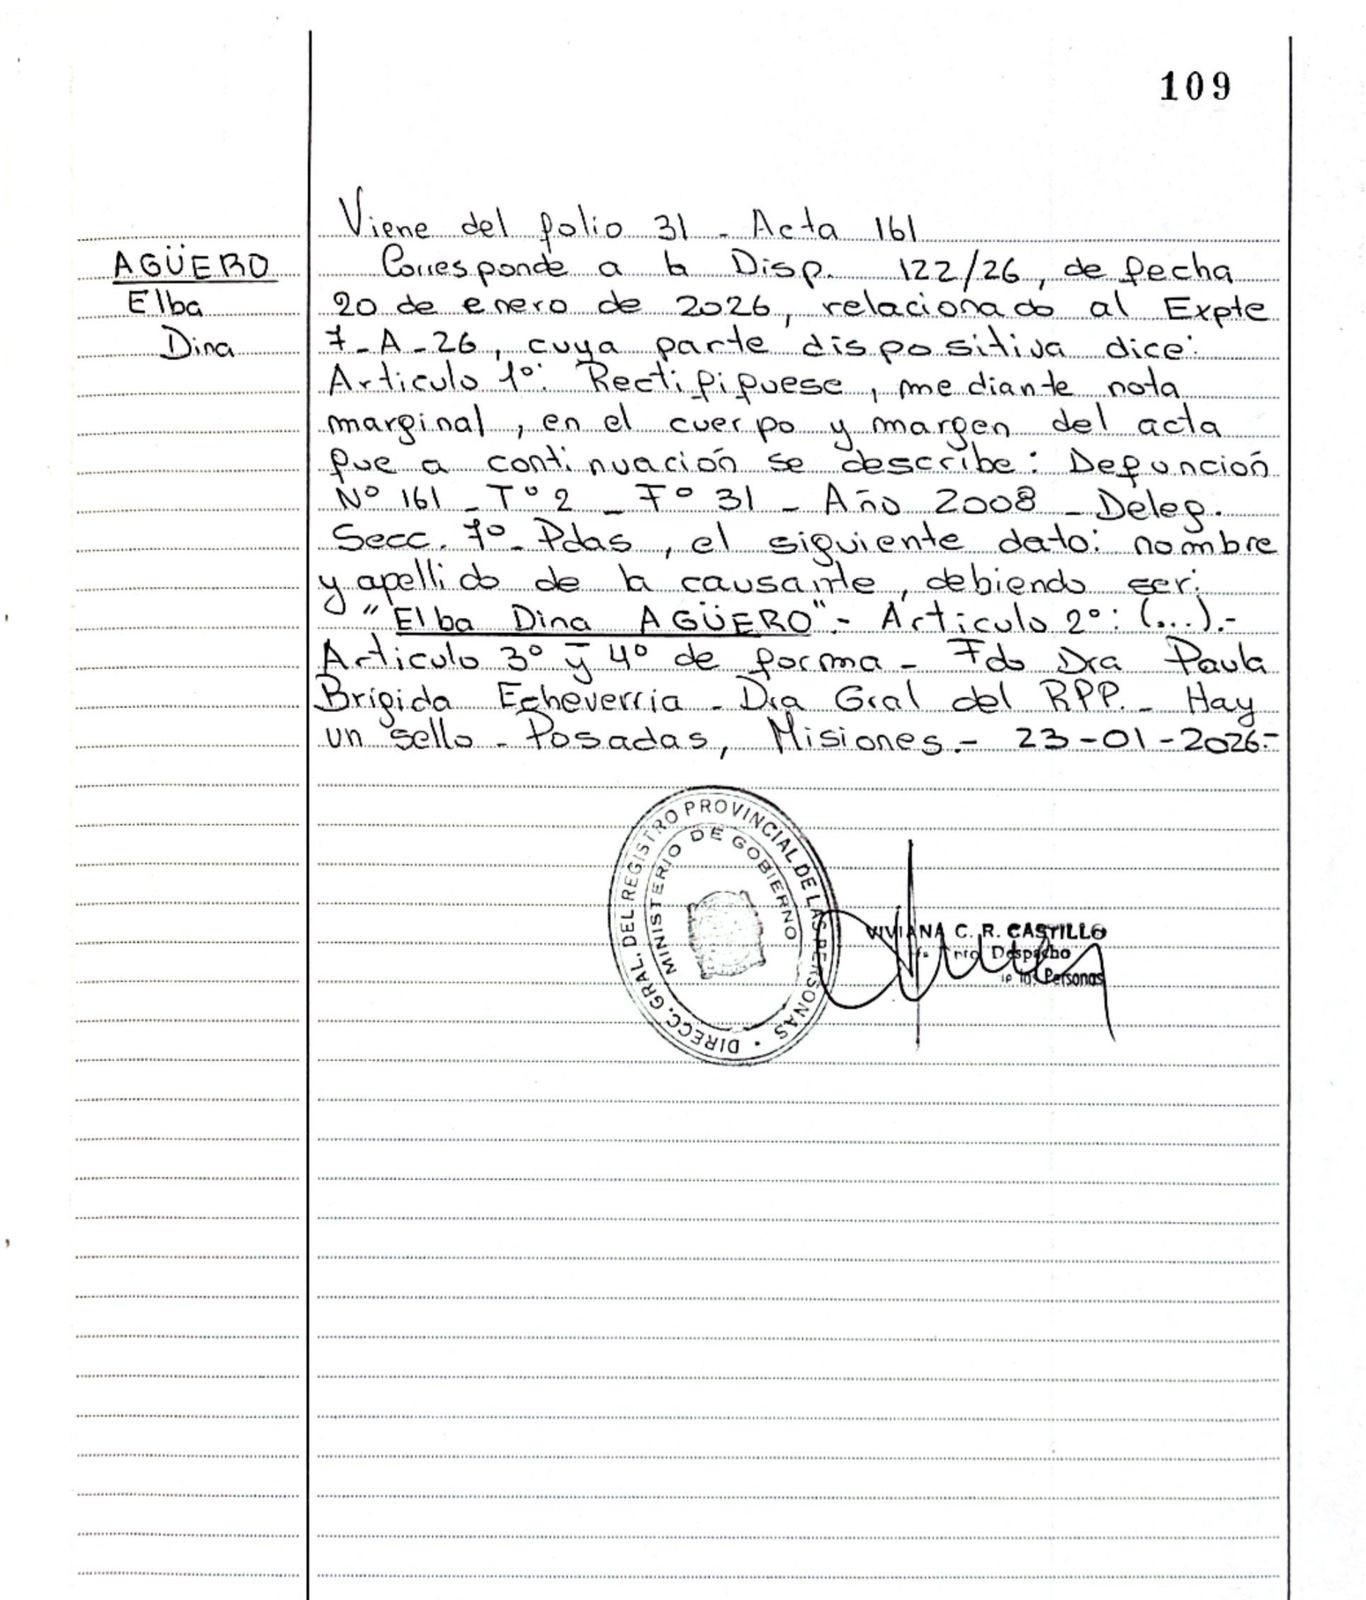 109
Viene del folio 31 - Acta 161
AGÜERO
Elba
Dina
Corresponde a la Disp. 122/26, de fecha
20 de enero de 2026, relacionado al Expte
7-A-26, cuya parte dispositiva dice:
Articulo 1º: Rectifiquese, mediante nota
marginal, en el cuerpo y margen del acta
que a continuación se describe: Defunción
Nº 161 - Tº 2 - Fº 31 - Año 2008 - Deleg.
Secc. 7º - Pdas, el siguiente dato: nombre
y apellido de la causante, debiendo ser:
"Elba Dina AGÜERO".- Articulo 2º: (...).-
Articulo 3º y 4º de forma - Fdo Dra Paula
Brigida Echeverria - Dra Gral del RPP. - Hay
un sello - Posadas, Misiones.- 23-01-2026.-
DIRECC. GRAL. DEL REGISTRO PROVINCIAL DE LAS PERSONAS
MINISTERIO DE GOBIERNO
VIVIANA C. R. CASTILLO
Despacho
Personas